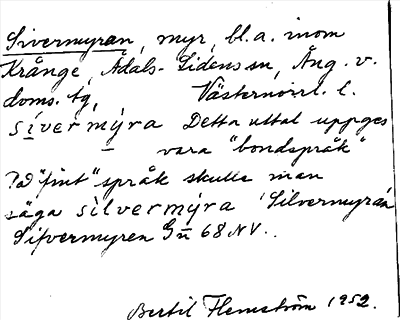 Sivermyran, myr, bl.a. inom
Krånge, Ådals-Lidens sn, Ång. v.
doms. tg, Västernorrl. l.
sívermýra Detta uttal uppges
vara "bondspråk"
På "fint" språk skulle man
säga sílvermýra 'Silvermyran
Silfvermyren Gn 68 NV.
Bertil Flemström 1952.